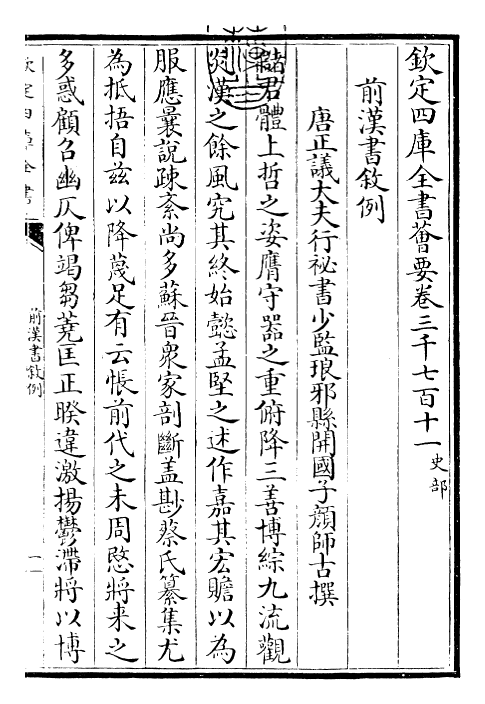 欽定四庫全書薈要卷三千七百十一 史部
前漢書敘例
唐正議大夫行祕書少監琅邪縣開國子顔師古撰
儲君體上哲之姿膺守器之重俯降三善博綜九流觀
炎漢之餘風究其終始懿孟堅之述作嘉其宏贍以為
服應曩說疎紊尚多蘇晉衆家剖斷盖尠蔡氏纂集尤
為抵捂自兹以降蔑足有云悵前代之未周愍將来之
多惑顧召幽仄俾竭芻蕘匡正暌違激揚鬱滯將以博
欽定四庫全書
前漢書敘例
一